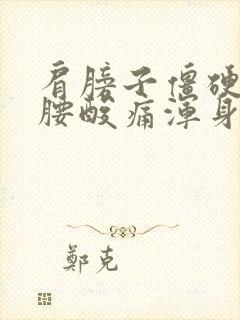 肩膀子僵硬
腰酸痛渾身
鄭克